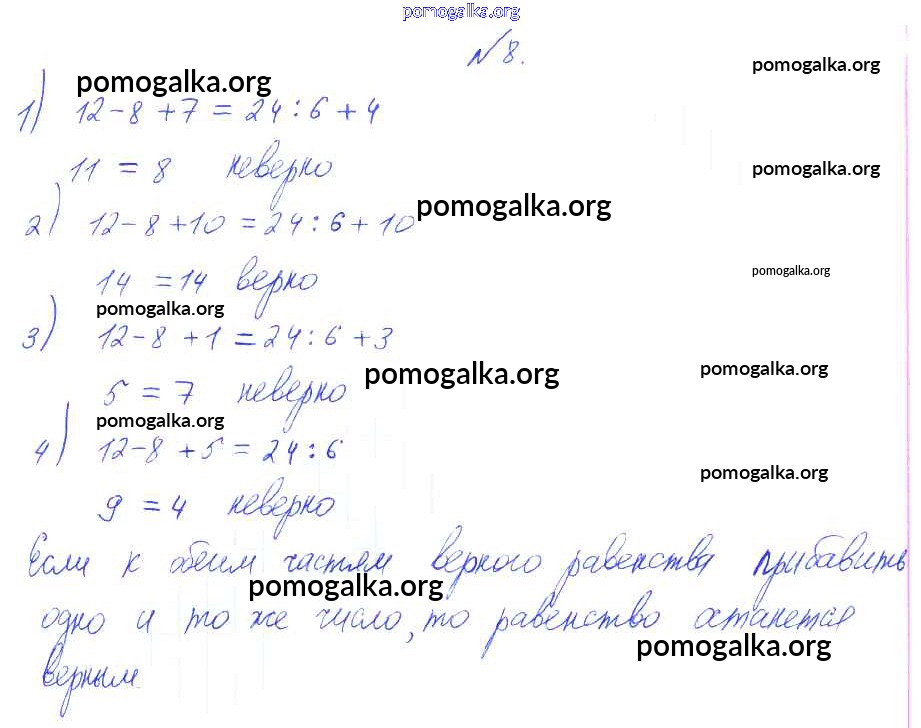 pomogalka.org
№8.
pomogalka.org
pomogalka.org
1) 12-8+7 = 24:6+4
11 = 8 неверно
pomogalka.org
2) 12-8+10 = 24:6+10
pomogalka.org
14 = 14 верно
pomogalka.org
pomogalka.org
3) 12-8+1 = 24:6+3
5 = 7 неверно
pomogalka.org
pomogalka.org
pomogalka.org
4) 12-8+5 = 24:6
pomogalka.org
9 = 4 неверно
Если к обеим частям верного равенства прибавить
pomogalka.org
одно и то же число, то равенство останется
pomogalka.org
верным